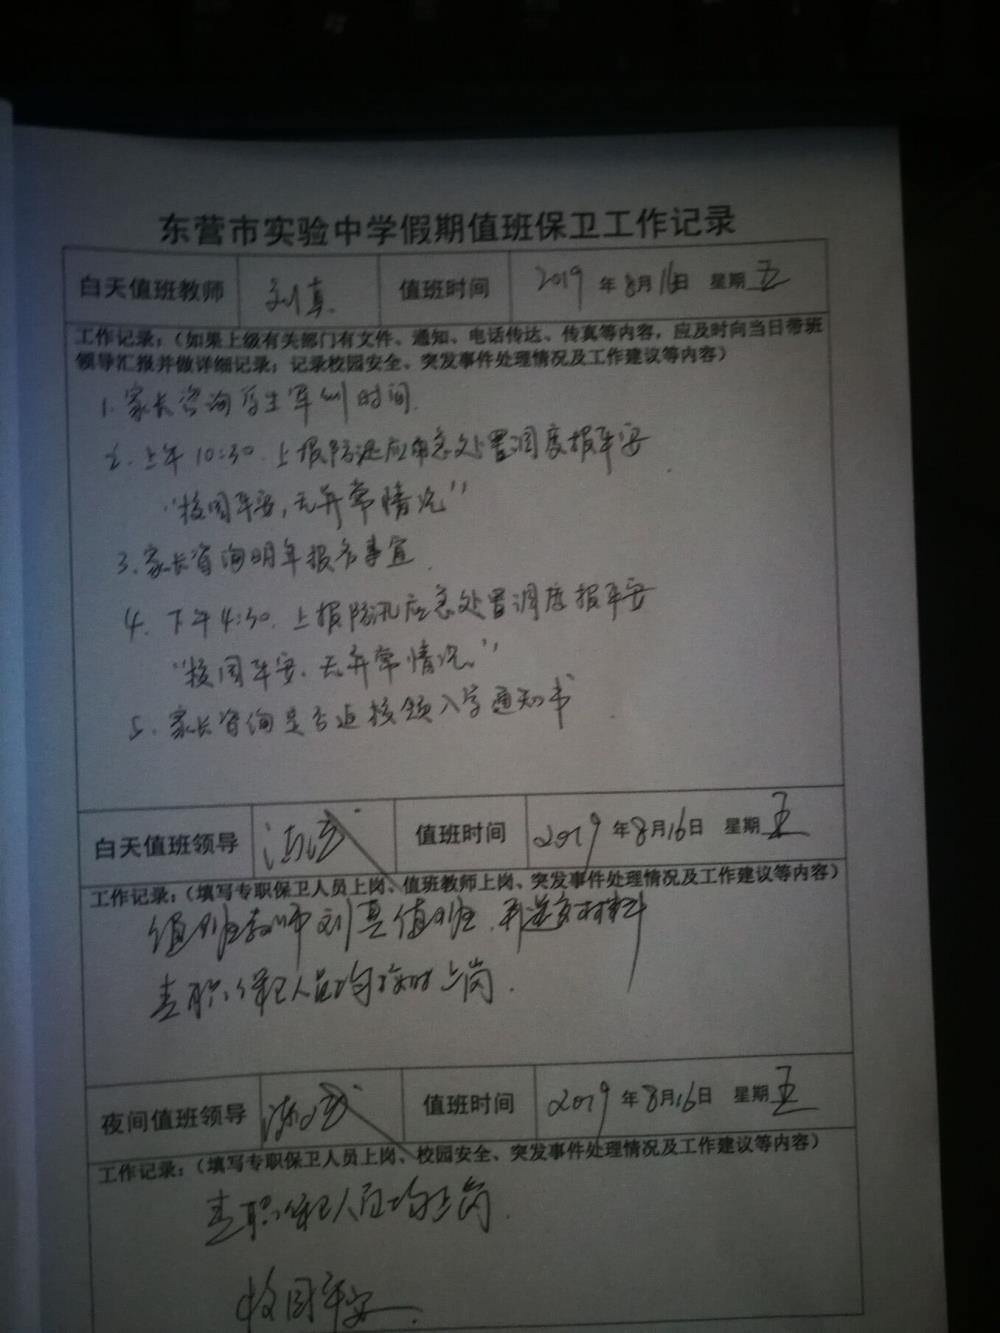 东营市实验中学假期值班保卫工作记录
白天值班教师 刘真 值班时间 2019年8月16日 星期五
工作记录：（如果上级有关部门有文件、通知、电话传达、传真等内容，应及时向当日带班
领导汇报并做详细记录；记录校园安全、突发事件处理情况及工作建议等内容）
1. 家长咨询学生军训时间.
2. 上午10:30. 上报防汛应急处置调度报平安
“校园平安，无异常情况”
3. 家长咨询明年报名事宜.
4. 下午4:30. 上报防汛应急处置调度报平安
“校园平安、无异常情况.”
5. 家长咨询是否返校领入学通知书
白天值班领导 值班时间 2019年8月16日 星期五
工作记录：（填写专职保卫人员上岗、值班教师上岗、突发事件处理情况及工作建议等内容）
值班教师刘真值班.
专职保卫人员均按时上岗.
夜间值班领导 值班时间 2019年8月16日 星期五
工作记录：（填写专职保卫人员上岗、校园安全、突发事件处理情况及工作建议等内容）
专职保卫人员均上岗.
校园平安.